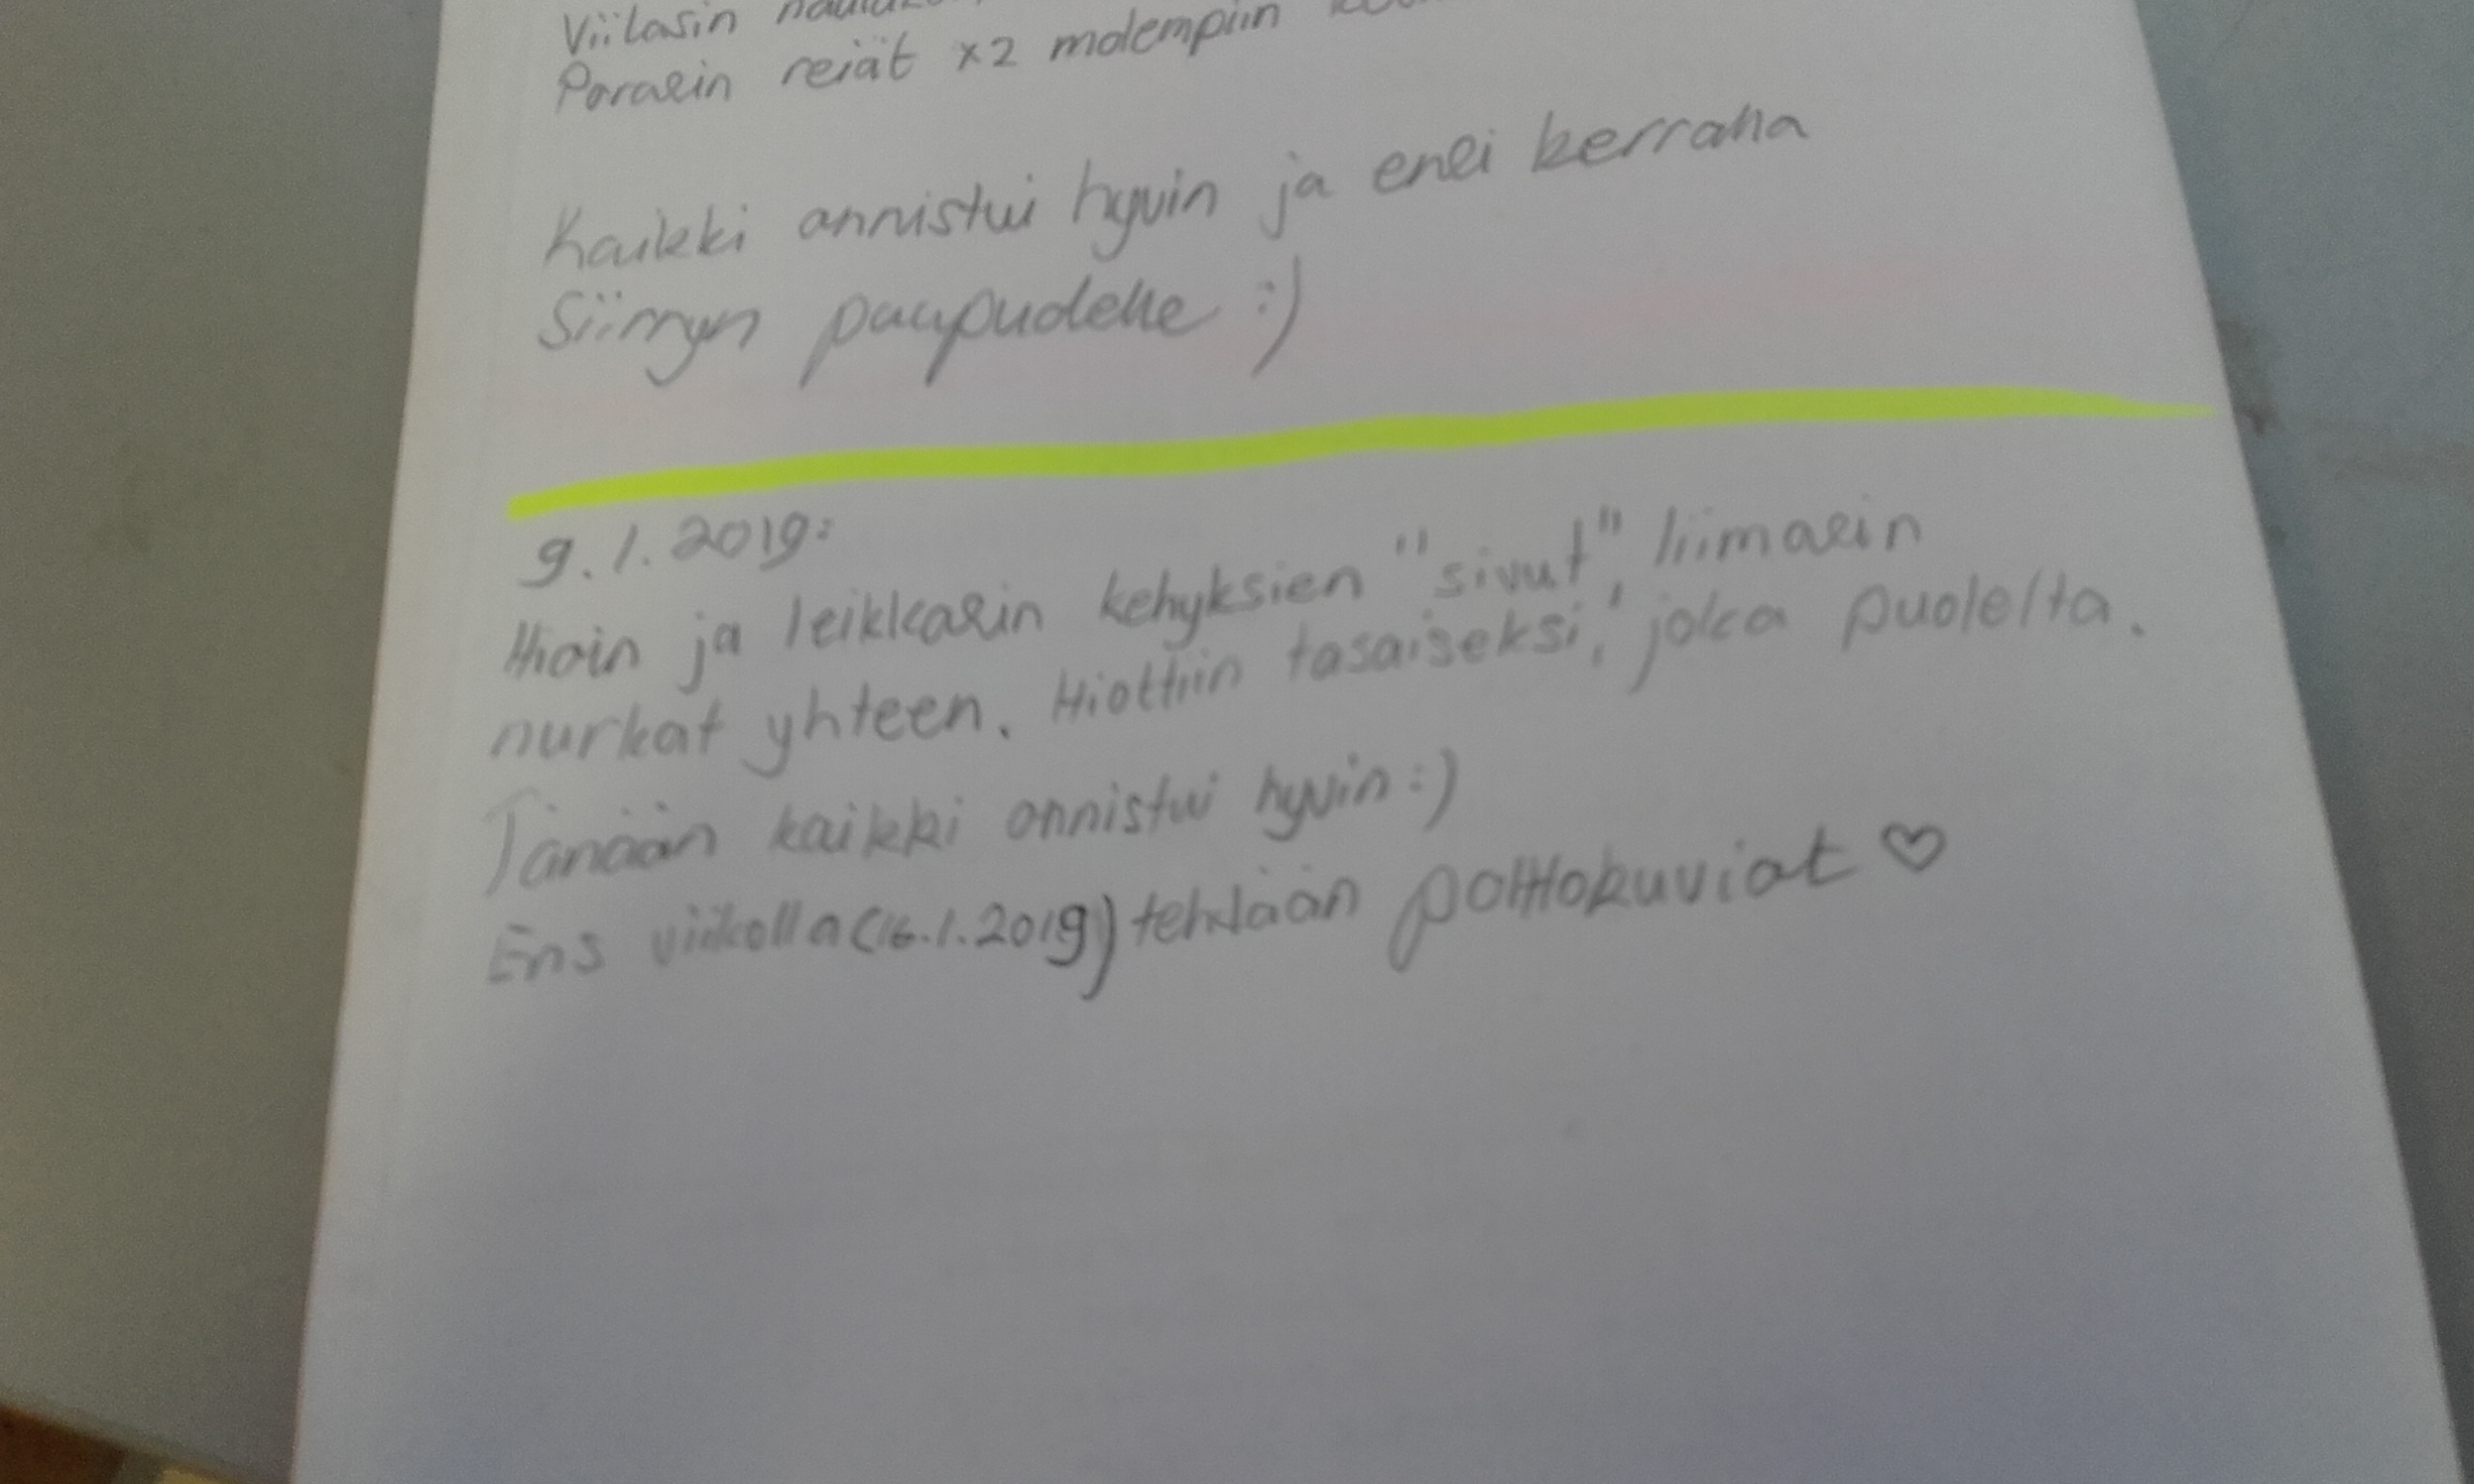 Viilasin
Porasin reiät x2 molempiin
Kaikki onnistui hyvin ja ensi kerralla
Siirryn puupuolelle :)
9.1.2019:
Hioin ja leikkasin kehyksien "sivut", liimasin
nurkat yhteen. Hiottiin tasaiseksi, joka puolelta.
Tänään kaikki onnistui hyvin :)
Ens viikolla (16.1.2019) tehdään polttokuviot ♡